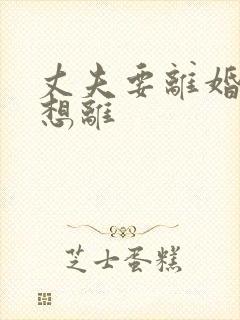 丈夫要離婚
想離
芝士蛋糕